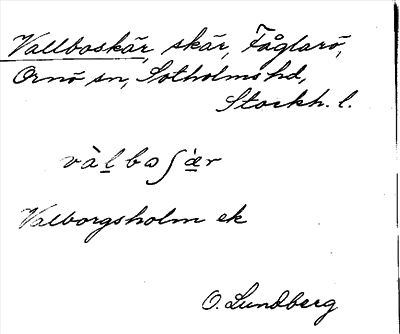 Vallboskär, skär, Fåglarö,
Ornö sn, Sotholms hd,
Stockh. l.
và l̲ bo ʃ æ̲̀ r
Valborgsholm ek
O. Lundberg